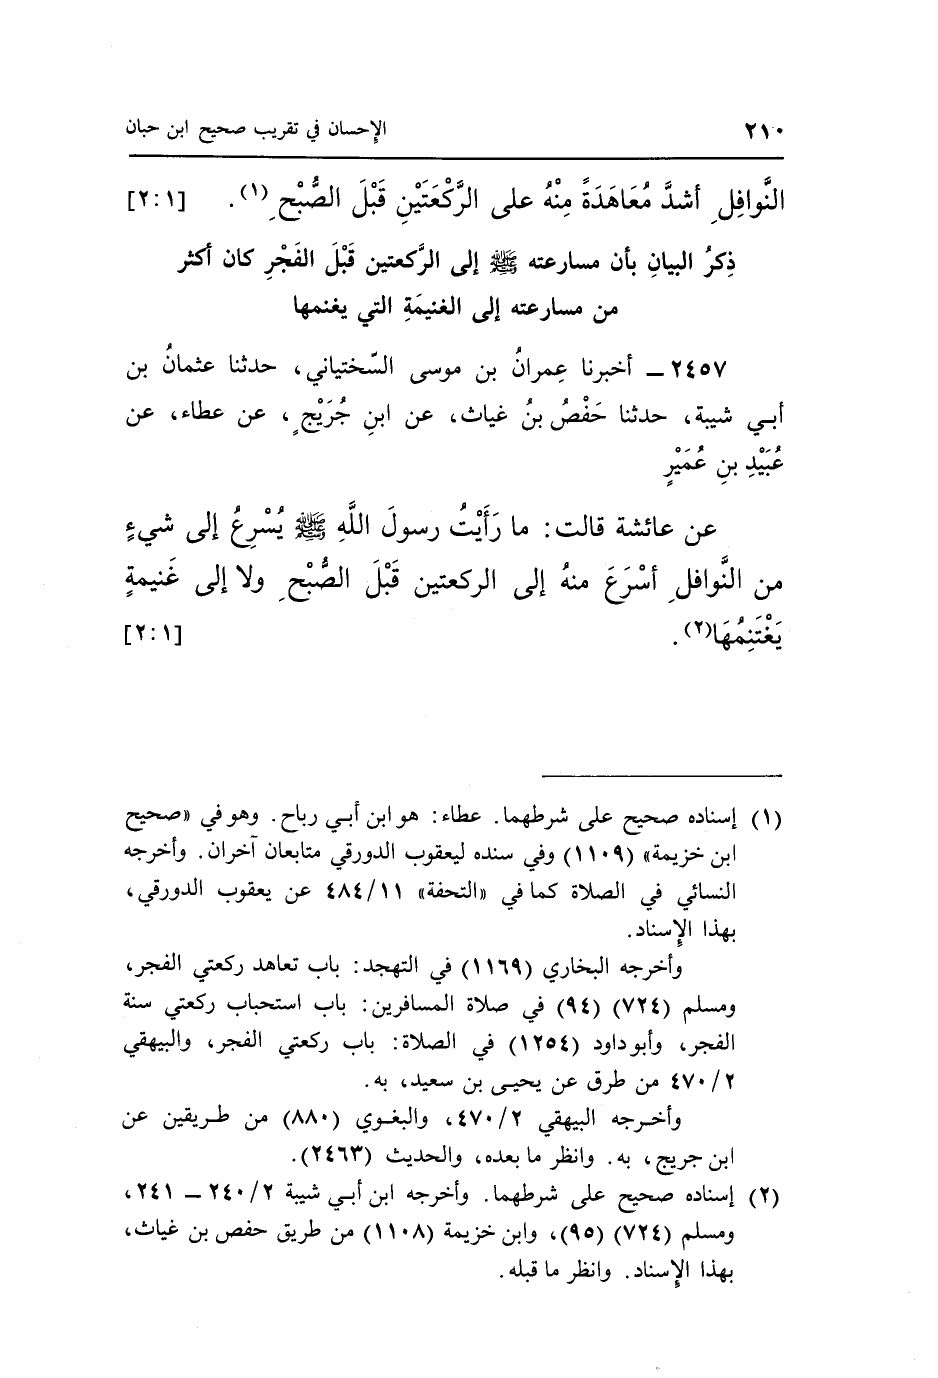 ٢١٠ الإحسان في تقريب صحيح ابن حبان
النَّوافِلِ أشدَّ مُعَاهَدَةً مِنْهُ على الرَّكْعَتَيْنِ قَبْلَ الصُّبْحِ(١). [٢:١]
ذِكرُ البيانِ بأن مسارعته ﷺ إلى الرَّكعتين قَبْلَ الفَجْرِ كان أكثر
من مسارعته إلى الغنيمَةِ التي يغنمها
٢٤٥٧ ــ أخبرنا عِمرانُ بن موسى السّختياني، حدثنا عثمانُ بن
أبي شيبة، حدثنا حَفْصُ بنُ غياث، عن ابنِ جُرَيْجٍ، عن عطاء، عن
عُبَيْدِ بنِ عُمَيْرٍ
عن عائشة قالت: ما رَأَيْتُ رسولَ اللَّهِ ﷺ يُسْرِعُ إلى شيءٍ
من النَّوافلِ أسْرَعَ منهُ إلى الركعتين قَبْلَ الصُّبْحِ ولا إلى غَنيمةٍ
يَغْتَنِمُهَا(٢). [٢:١]
(١) إسناده صحيح على شرطهما. عطاء: هو ابن أبي رباح. وهو في «صحيح
ابن خزيمة» (١١٠٩) وفي سنده ليعقوب الدورقي متابعان آخران. وأخرجه
النسائي في الصلاة كما في «التحفة» ٤٨٤/١١ عن يعقوب الدورقي،
بهذا الإسناد.
وأخرجه البخاري (١١٦٩) في التهجد: باب تعاهد ركعتي الفجر،
ومسلم (٧٢٤) (٩٤) في صلاة المسافرين: باب استحباب ركعتي سنة
الفجر، وأبو داود (١٢٥٤) في الصلاة: باب ركعتي الفجر، والبيهقي
٤٧٠/٢ من طرق عن يحيى بن سعيد، به.
وأخرجه البيهقي ٤٧٠/٢، والبغوي (٨٨٠) من طريقين عن
ابن جريج، به. وانظر ما بعده، والحديث (٢٤٦٣).
(٢) إسناده صحيح على شرطهما. وأخرجه ابن أبي شيبة ٢٤٠/٢ ــ ٢٤١،
ومسلم (٧٢٤) (٩٥)، وابن خزيمة (١١٠٨) من طريق حفص بن غياث،
بهذا الإسناد. وانظر ما قبله.